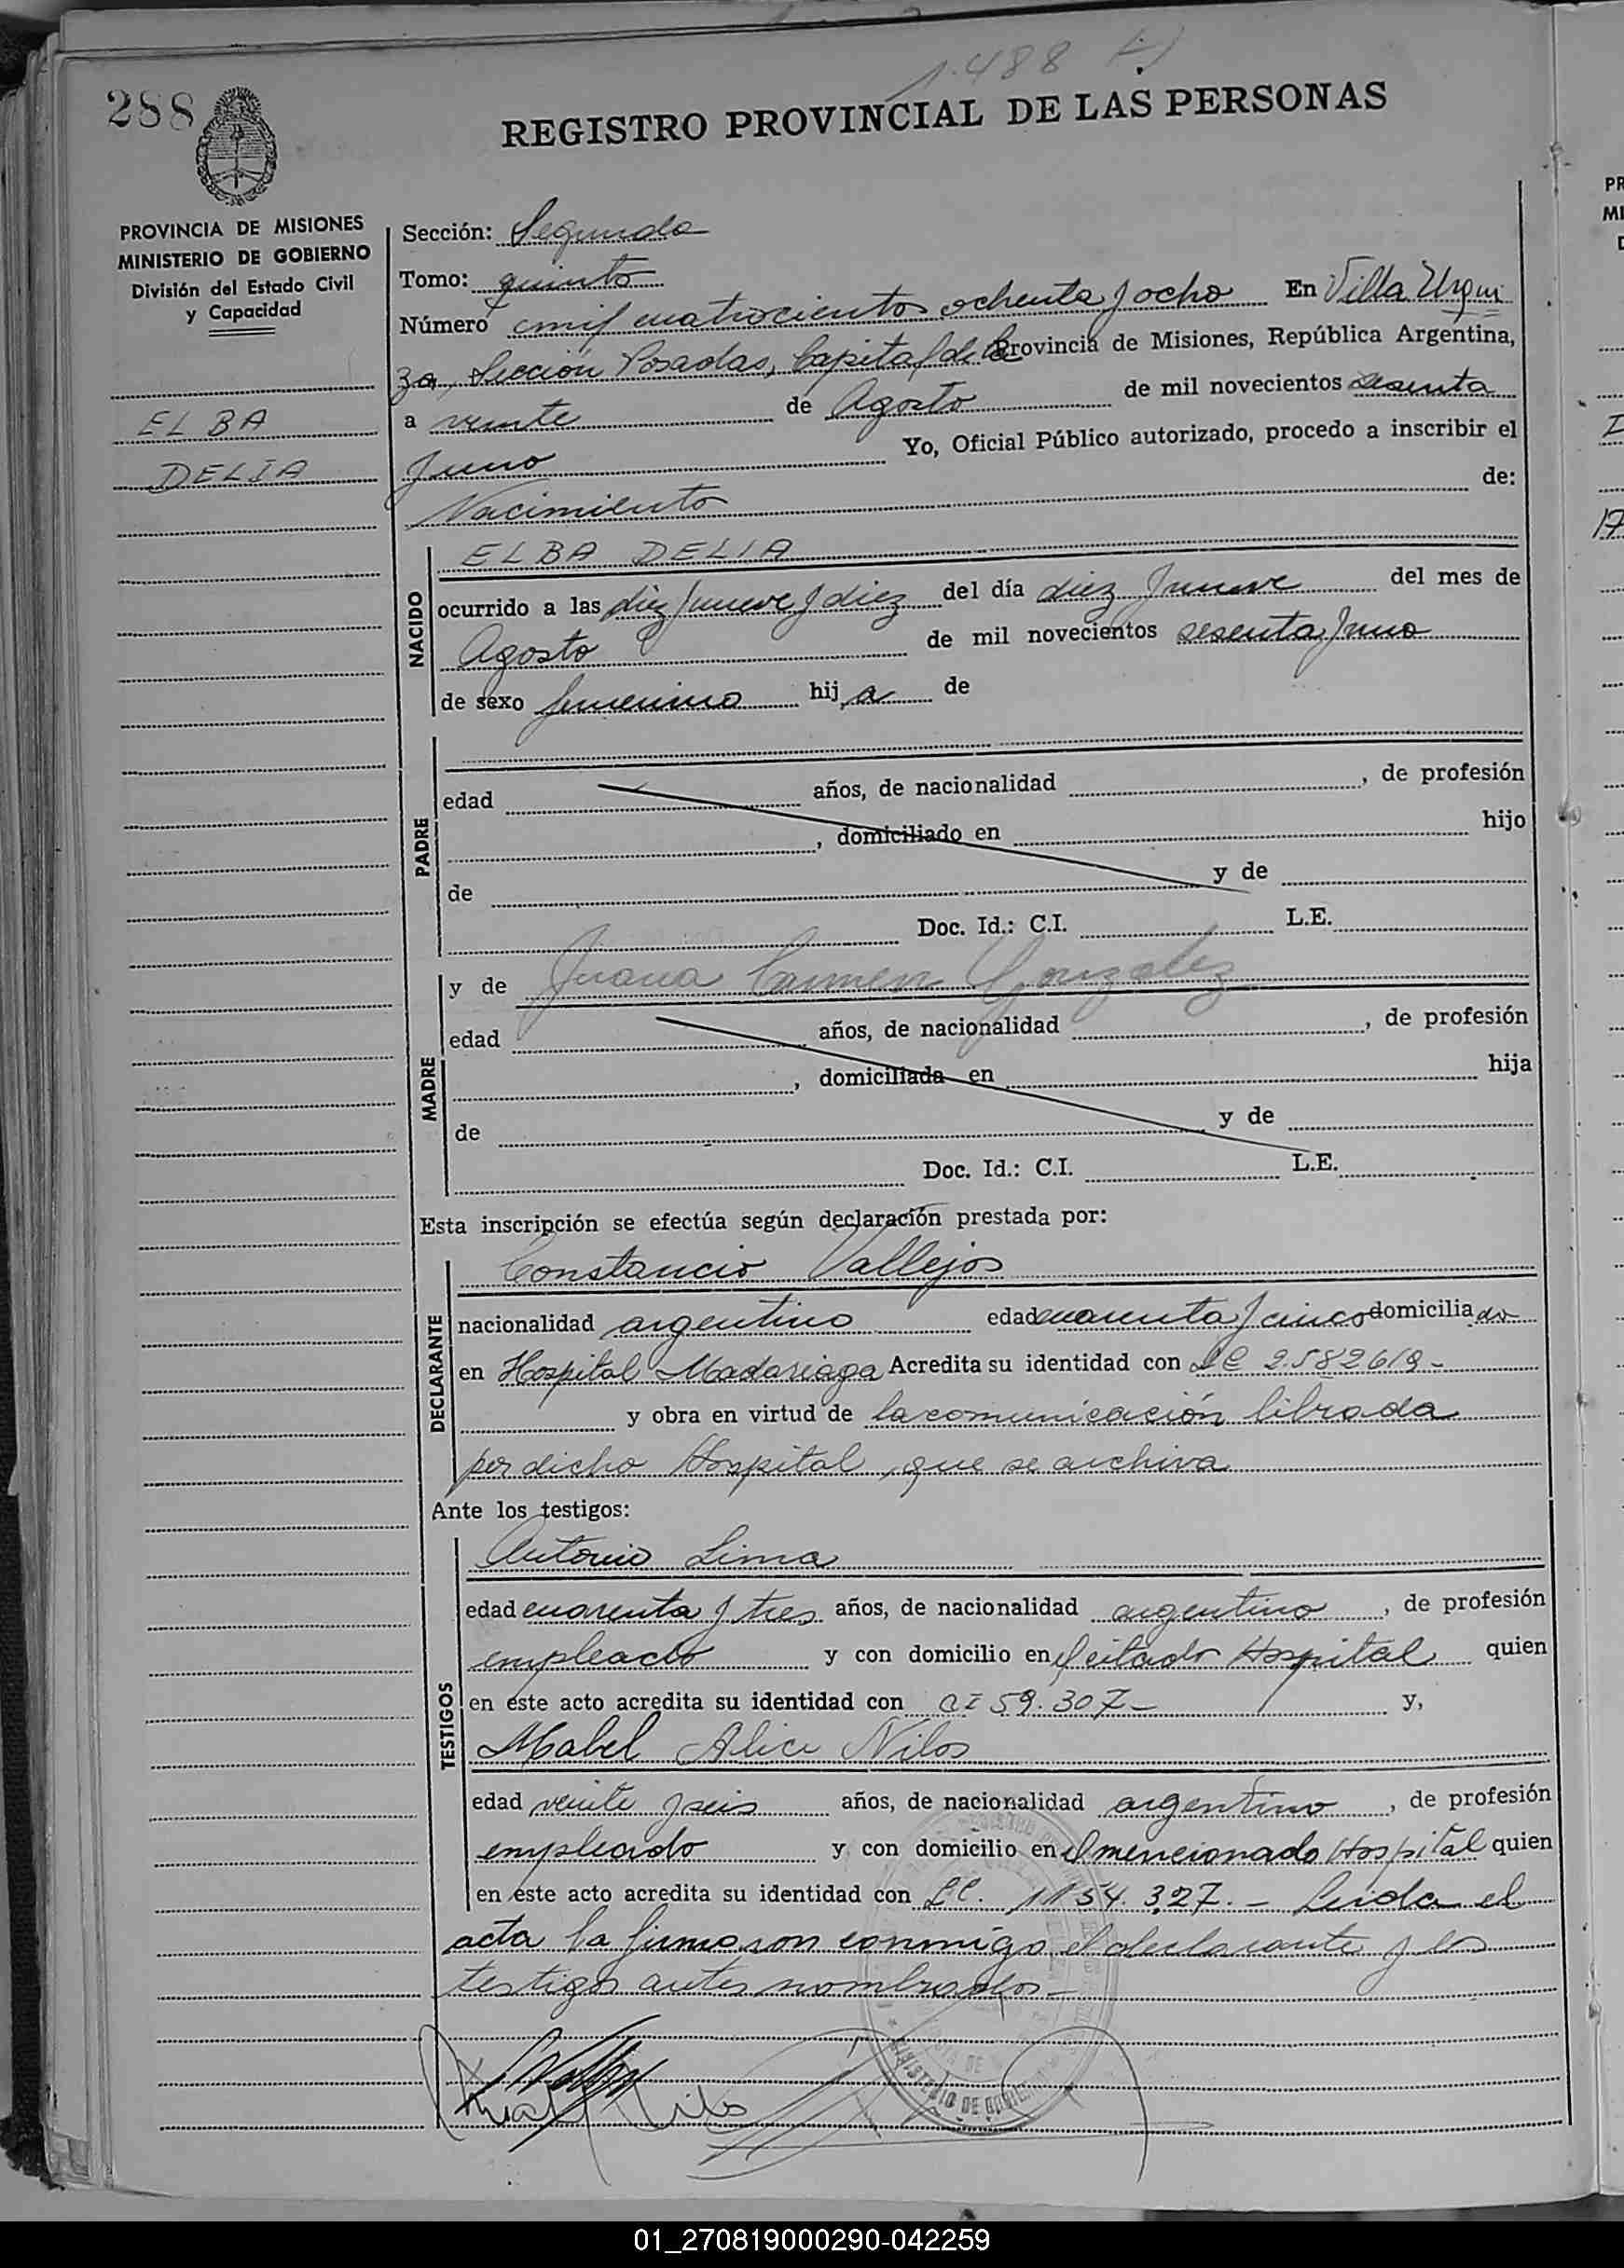 1.488
288
REGISTRO PROVINCIAL DE LAS PERSONAS
PROVINCIA DE MISIONES
MINISTERIO DE GOBIERNO
División del Estado Civil
y Capacidad
ELBA
DELIA
Sección: Segunda
Tomo: quinto
Número mil cuatrocientos ochenta y ocho En Villa Urqui
za, Sección Posadas, Capital de la Provincia de Misiones, República Argentina,
a veinte de Agosto de mil novecientos sesenta
y uno Yo, Oficial Público autorizado, procedo a inscribir el
Nacimiento de:
NACIDO
ELBA DELIA
ocurrido a las diez y nueve y diez del día diez y nueve del mes de
Agosto de mil novecientos sesenta y uno
de sexo femenino hij a de
PADRE
edad años, de nacionalidad , de profesión
, domiciliado en hijo
de y de
Doc. Id.: C.I. L.E.
MADRE
y de Juana Carmen Gonzalez
edad años, de nacionalidad , de profesión
, domiciliada en hija
de y de
Doc. Id.: C.I. L.E.
Esta inscripción se efectúa según declaración prestada por:
DECLARANTE
Constancio Vallejos
nacionalidad argentino edad cuarenta y cinco domicilia do
en Hospital Madariaga Acredita su identidad con LE 2.582619-
y obra en virtud de la comunicación librada
por dicho Hospital, que se archiva
Ante los testigos:
TESTIGOS
Antonio Lima
edad cuarenta y tres años, de nacionalidad argentino, de profesión
empleado y con domicilio en el citado Hospital quien
en este acto acredita su identidad con CI 59.307- y,
Mabel Alice Nilos
edad veinte y seis años, de nacionalidad argentino, de profesión
empleado y con domicilio en el mencionado Hospital quien
en este acto acredita su identidad con LC. 1154.327.- Leida el
acta la firmaron conmigo el declarante y los
testigos antes nombrados-
MINISTERIO DE GOBIERNO
PR
MI
17
01_270819000290-042259